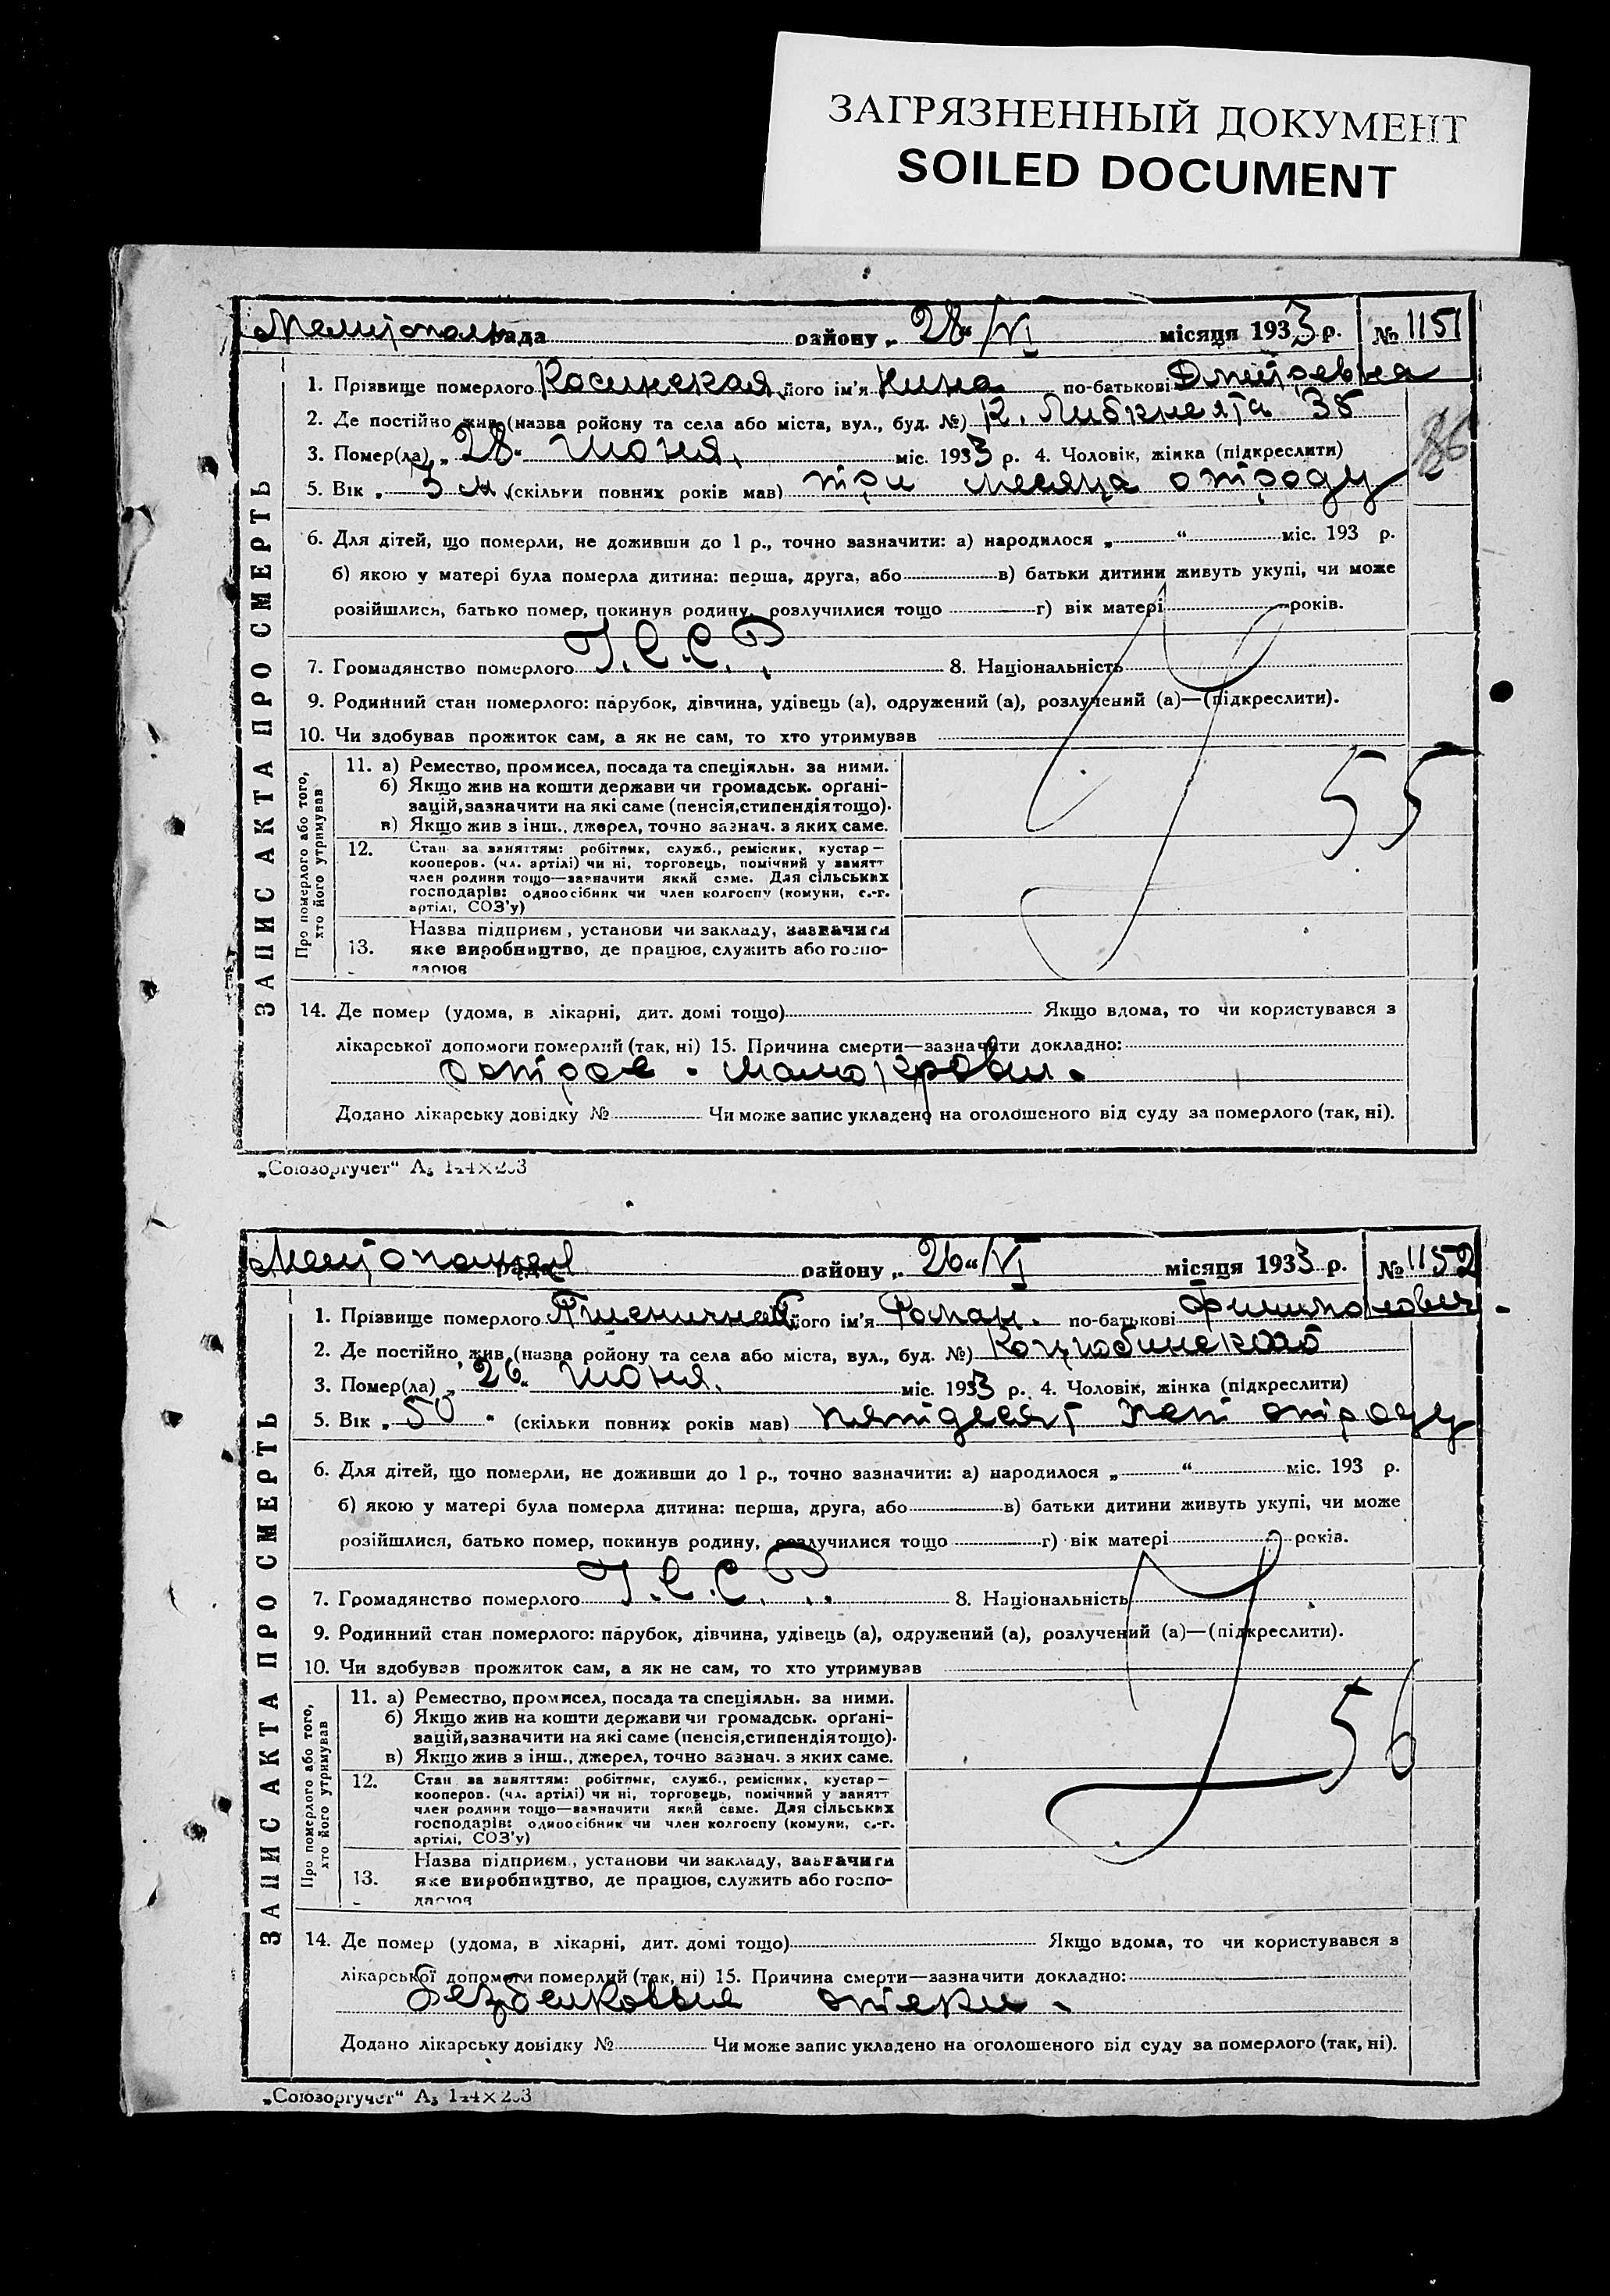 ЗАГРЯЗНЕННЫЙ ДОКУМЕНТ
SOILED DOCUMENT
рада району „28“ /VI місяця 1933 р. № 1151
ЗАПИС АКТА ПРО СМЕРТЬ
1. Прізвище померлого Косинская його ім'я Нина по-батькові Дмитревна
2. Де постійно жив (назва району та села або міста, вул., буд. №) К. Либкнехта 38
3. Помер(ла) „28“ июня міс. 1933 р. 4. Чоловік, жінка (підкреслити)
5. Вік „3 м. (скільки повних років мав) три месяца отроду
86
6. Для дітей, що померли, не доживши до 1 р., точно зазначити: а) народилося „ “ міс. 193 р.
б) якою у матері була померла дитина: перша, друга, або в) батьки дитини живуть укупі, чи може
розійшлися, батько помер, покинув родину, розлучилися тощо г) вік матері років.
7. Громадянство померлого У.С.С.Р. 8. Національність
9. Родинний стан померлого: парубок, дівчина, удівець (а), одружений (а), розлучений (а)—(підкреслити).
10. Чи здобував прожиток сам, а як не сам, то хто утримував
Про померлого або того, хто його утримував
11. а) Ремество, промисел, посада та спеціяльн. за ними.
б) Якщо жив на кошти держави чи громадськ. орґані-
зацій, зазначити на які саме (пенсія, стипендія тощо).
в) Якщо жив з інш., джерел, точно зазнач. з яких саме.
55
12. Стан за заняттям: робітник, служб., ремісник, кустар—
кооперов. (чл. артілі) чи ні, торговець, помічний у занятт
член родини тощо—зазначити який саме. Для сільських
господарів: одноосібник чи член колгоспу (комуни, с.-г.
артілі, СОЗ'у)
Назва підприєм., установи чи закладу, зазначити
13. яке виробництво, де працює, служить або госпо-
дарює
14. Де помер (удома, в лікарні, дит. домі тощо) Якщо вдома, то чи користувався з
лікарської допомоги померлий (так, ні) 15. Причина смерти—зазначити докладно:
острое малокровие.
Додано лікарську довідку № Чи може запис укладено на оголошеного від суду за померлого (так, ні).
„Союзоргучет“ А5 144×203
рада району „26“ /VI місяця 1933 р. № 1152
ЗАПИС АКТА ПРО СМЕРТЬ
1. Прізвище померлого Пшеничный його ім'я Роман. по-батькові Филимонович.
2. Де постійно жив (назва району та села або міста, вул., буд. №) Коцюбинского
3. Помер(ла) „26“ июня. міс. 1933 р. 4. Чоловік, жінка (підкреслити)
5. Вік „50“ (скільки повних років мав) пятдесят лет отроду
6. Для дітей, що померли, не доживши до 1 р., точно зазначити: а) народилося „ “ міс. 193 р.
б) якою у матері була померла дитина: перша, друга, або в) батьки дитини живуть укупі, чи може
розійшлися, батько помер, покинув родину, розлучилися тощо г) вік матері років.
7. Громадянство померлого У.С.С.Р. 8. Національність
9. Родинний стан померлого: парубок, дівчина, удівець (а), одружений (а), розлучений (а)—(підкреслити).
10. Чи здобував прожиток сам, а як не сам, то хто утримував
Про померлого або того, хто його утримував
11. а) Ремество, промисел, посада та спеціяльн. за ними.
б) Якщо жив на кошти держави чи громадськ. орґані-
зацій, зазначити на які саме (пенсія, стипендія тощо).
в) Якщо жив з інш., джерел, точно зазнач. з яких саме.
56
12. Стан за заняттям: робітник, служб., ремісник, кустар—
кооперов. (чл. артілі) чи ні, торговець, помічний у занятт
член родини тощо—зазначити який саме. Для сільських
господарів: одноосібник чи член колгоспу (комуни, с.-г.
артілі, СОЗ'у)
Назва підприєм., установи чи закладу, зазначити
13. яке виробництво, де працює, служить або госпо-
дарює
14. Де помер (удома, в лікарні, дит. домі тощо) Якщо вдома, то чи користувався з
лікарської допомоги померлий (так, ні) 15. Причина смерти—зазначити докладно:
безбелковые отеки.
Додано лікарську довідку № Чи може запис укладено на оголошеного від суду за померлого (так, ні).
„Союзоргучет“ А5 144×203